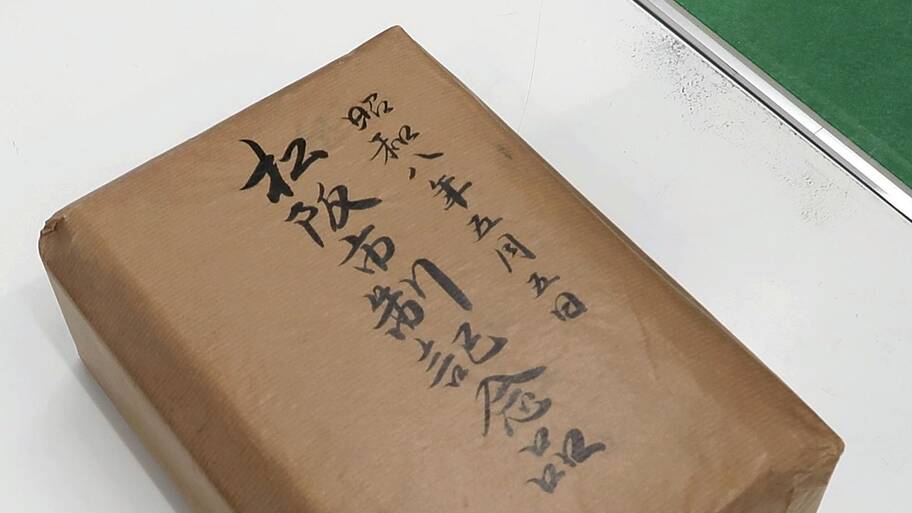 昭和八年五月五日
松阪市制記念品